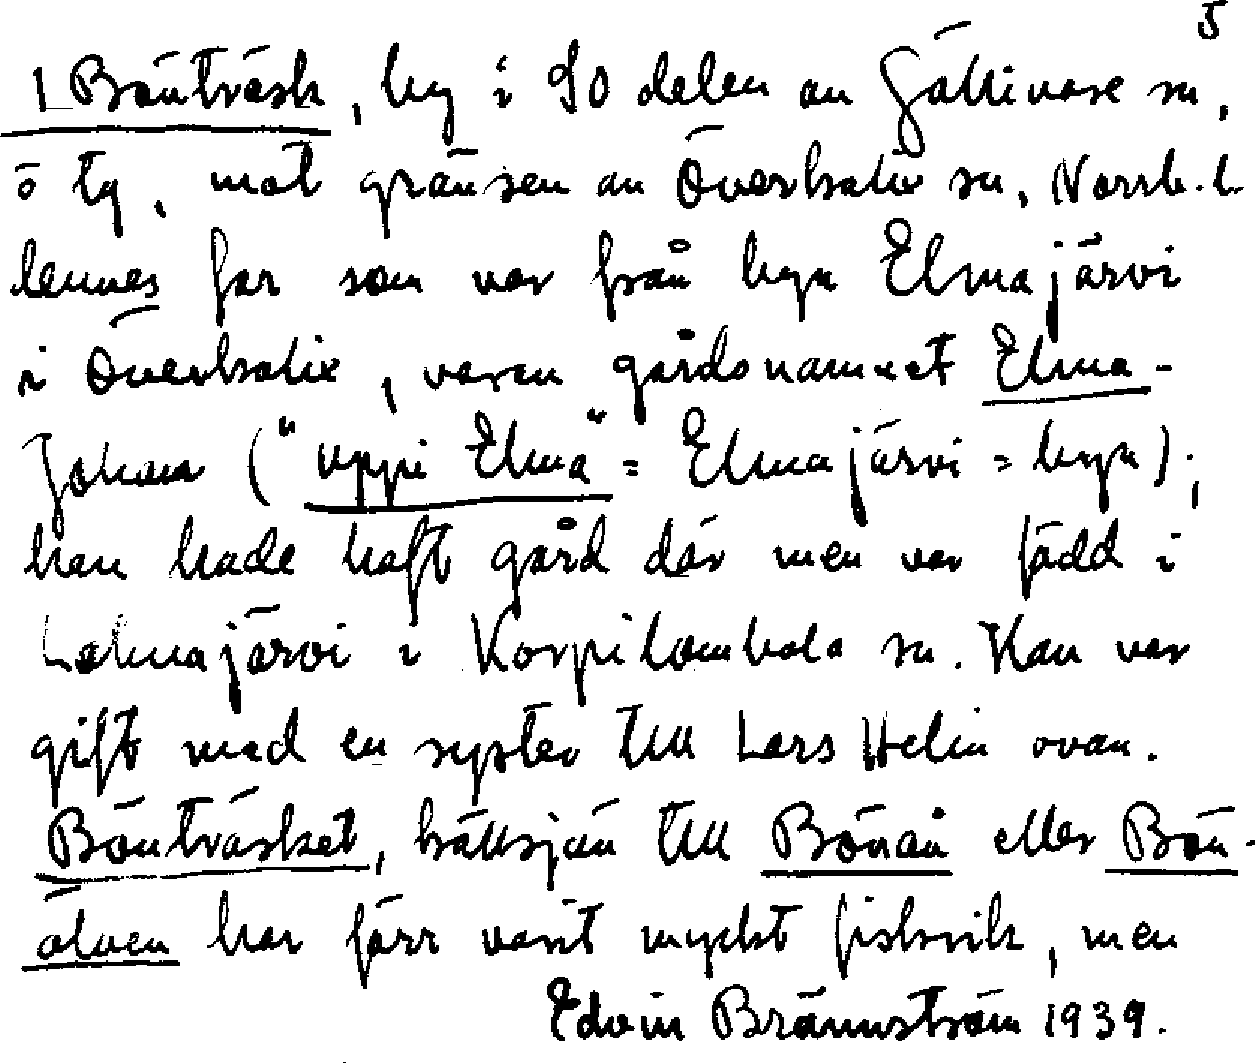 5
1 Böuträsk, by i SO delen av Gällivare sn,
ö tg, mot gränsen av Överkalix sn, Norrb. l.
hennes far som var från byn Elmajärvi
i Överkalix, varav gårdsnamnet Elma-
Johan ("uppi Elma" = Elmajärvi = byn);
han hade haft gård där men var född i
järvi i Korpilombolo sn. Han var
gift med en syster till Lars Helin ovan.
Bönträsket, källsjön till Bönån eller Bön-
älven har förr varit mycket fiskrik, men
Edvin Brännström 1939.